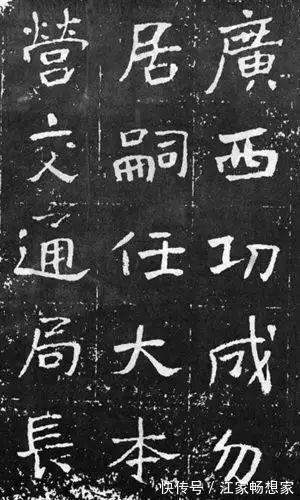 廣西功成勿
居嗣任大本
營交通局長
快传号/江家畅想家